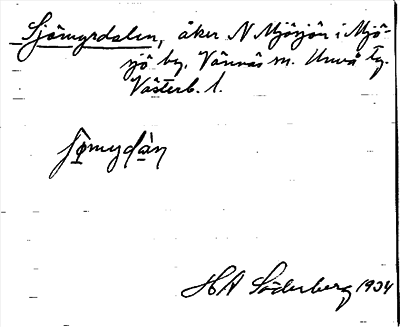 Sjömyrdalen, åker N Mjösjön i Mjö-
sjö by, Vännäs sn. Umeå tg.
Västerb. l.
HA Söderberg 1934